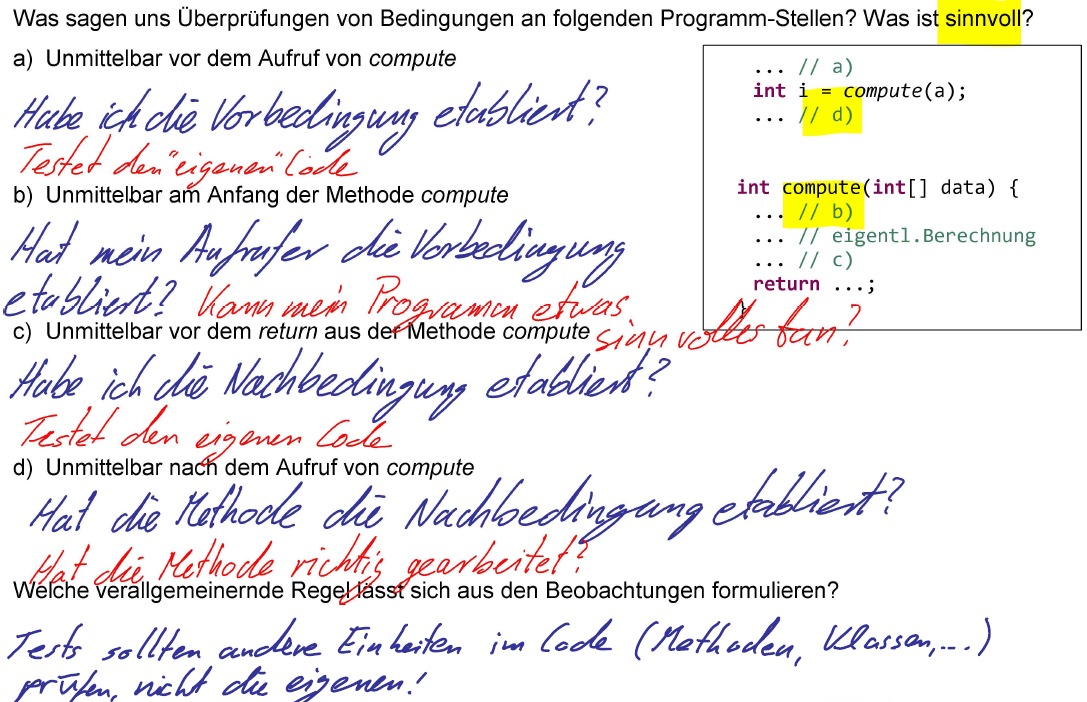 Was sagen uns Überprüfungen von Bedingungen an folgenden Programm-Stellen? Was ist sinnvoll?
a) Unmittelbar vor dem Aufruf von compute
Habe ich die Vorbedingung etabliert?
Testet den "eigenen" Code
b) Unmittelbar am Anfang der Methode compute
Hat mein Aufrufer die Vorbedingung
etabliert? Kann mein Programm etwas
sinnvolles tun?
c) Unmittelbar vor dem return aus der Methode compute
Habe ich die Nachbedingung etabliert?
Testet den eigenen Code
d) Unmittelbar nach dem Aufruf von compute
Hat die Methode die Nachbedingung etabliert?
Hat die Methode richtig gearbeitet?
Welche verallgemeinernde Regel lässt sich aus den Beobachtungen formulieren?
Tests sollten andere Einheiten im Code (Methoden, Klassen,...)
prüfen, nicht die eigenen!
... // a)
int i = compute(a);
... // d)
int compute(int[] data) {
... // b)
... // eigentl.Berechnung
... // c)
return ...;
}